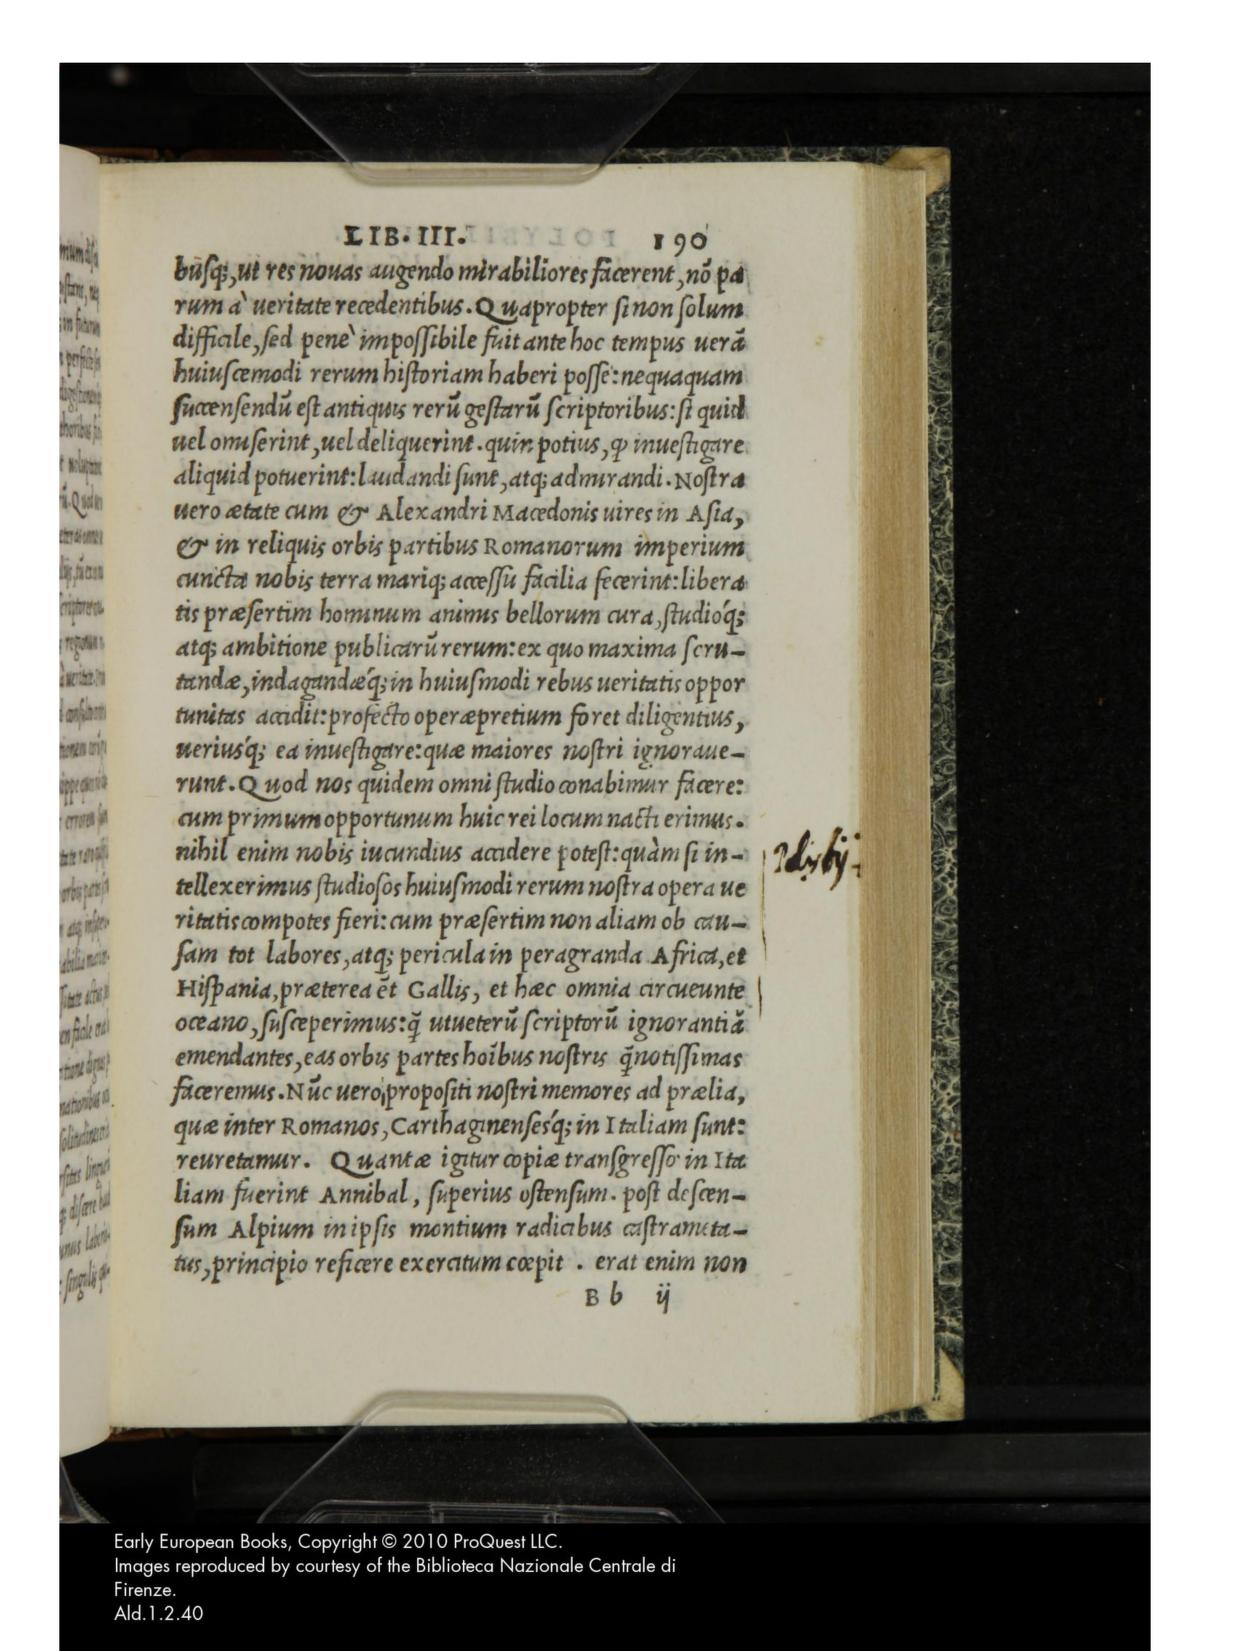 LIB. III. 190
busq;, ut res nouas augendo mirabiliores facerent, nõ pa
rum à ueritate recedentibus. Quapropter si non solum
difficile, sed penè impossibile fuit ante hoc tempus uerã
huiuscemodi rerum historiam haberi posse: nequaquam
succensendũ est antiquis rerũ gestarũ scriptoribus: si quid
uel omiserint, uel deliquerint. quin potius, ꝙ inuestigare
aliquid potuerint: laudandi sunt, atq; admirandi. Nostra
uero ætate cum & Alexandri Macedonis uires in Asia,
& in reliquis orbis partibus Romanorum imperium
cuncta nobis terra mariq; accessu facilia fecerint: libera
tis præsertim hominum animis bellorum cura, studióq;
atq; ambitione publicarũ rerum: ex quo maxima scru-
tandæ, indagandæ'q; in huiusmodi rebus ueritatis oppor
tunitas accidit: profecto operæpretium foret diligentius,
uerius'q; ea inuestigare: quæ maiores nostri ignoraue-
runt. Quod nos quidem omni studio conabimur facere:
cum primum opportunum huic rei locum nacti erimus.
nihil enim nobis iucundius accidere potest: quàm si in-
tellexerimus studiosos huiusmodi rerum nostra opera ue
ritatis compotes fieri: cum præsertim non aliam ob cau-
sam tot labores, atq; pericula in peragranda Africa, et
Hispania, præterea ẽt Gallis, et hæc omnia circueunte
oceano, susceperimus: q̃ ut ueterũ scriptorũ ignorantiã
emendantes, eas orbis partes hoĩbus nostris q̃notissimas
faceremus. Nũc uero, propositi nostri memores ad prælia,
quæ inter Romanos, Carthaginenses'q; in Italiam sunt:
reuretamur. Quantæ igitur copiæ transgresso in Ita
liam fuerint Annibal, superius ostensum. post descen-
sum Alpium in ipsis montium radicibus castrameta-
tus, principio reficere exercitum cœpit. erat enim non
Bb ij
Early European Books, Copyright © 2010 ProQuest LLC.
Images reproduced by courtesy of the Biblioteca Nazionale Centrale di
Firenze.
Ald.1.2.40